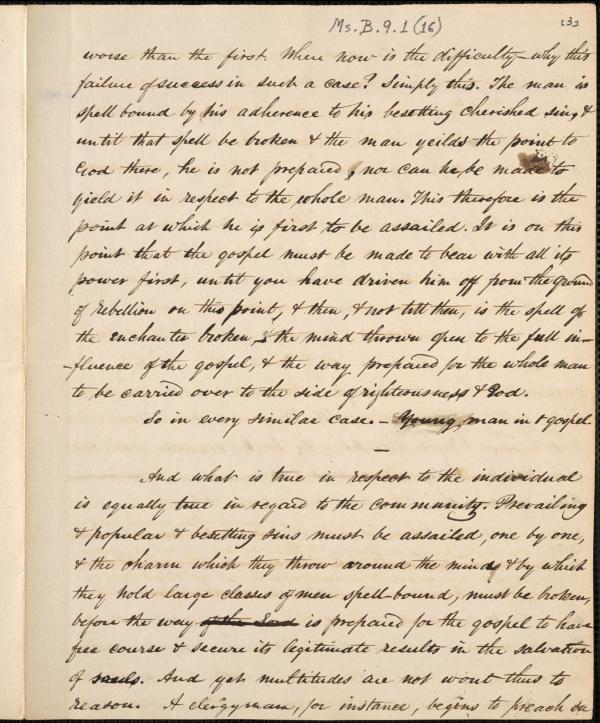 Ms.B.9.1(16)
[3]
worse than the first. Where now is the difficulty - why this
failure of success in such a case? Simply this. The man is
spell bound by his adherence to his besetting cherished sins, &
until that spell be broken & the man yeilds the point to
God there, he is not prepared, nor can he, be made to
yield it in respect to the whole man. This therefore is the
point at which he is first to be assailed. It is on this
point that the gospel must be made to bear with all its
power first, until you have driven him off from the ground
of rebellion on this point, & then, & not till then, is the spell of
the enchanter broken, & the mind thrown open to the full in-
-fluence of the gospel, & the way prepared for the whole man
to be carried over to the side of righteousness & God.
So in every similar case. - Young man in & gospel
-
And what is true in respect to the individual
is equally true in regard to the community. Prevailing
& popular & besetting sins must be assailed, one by one,
& the charm which they throw around the minds & by which
they hold large classes of men spell-bound, must be broken,
before the way of the Lord is prepared for the gospel to have
free course & secure its legitimate results in the salvation
of souls. And yet multitudes are not wont thus to
reason. A clergyman, for instance, begins to preach on